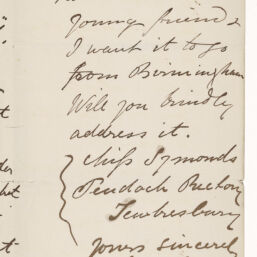 young friend &
I want it to go
from Birmingham
Will you kindly
address it.
Miss Symonds
Pendock Rectory
Tewkesbury
Yours sincerely